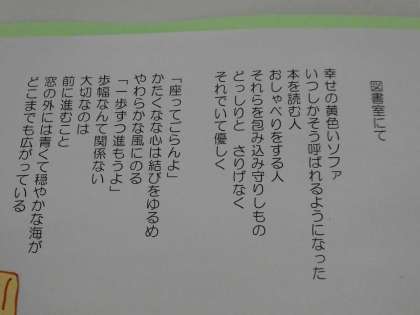 図書室にて
幸せの黄色いソファ
いつしかそう呼ばれるようになった
本を読む人
おしゃべりをする人
それらを包み込み守りしもの
どっしりと　さりげなく
それでいて優しく
「座ってごらんよ」
かたくなな心は結びをゆるめ
やわらかな風にのる
「一歩ずつ進もうよ」
歩幅なんて関係ない
大切なのは
前に進むこと
窓の外には青くて穏やかな海が
どこまでも広がっている